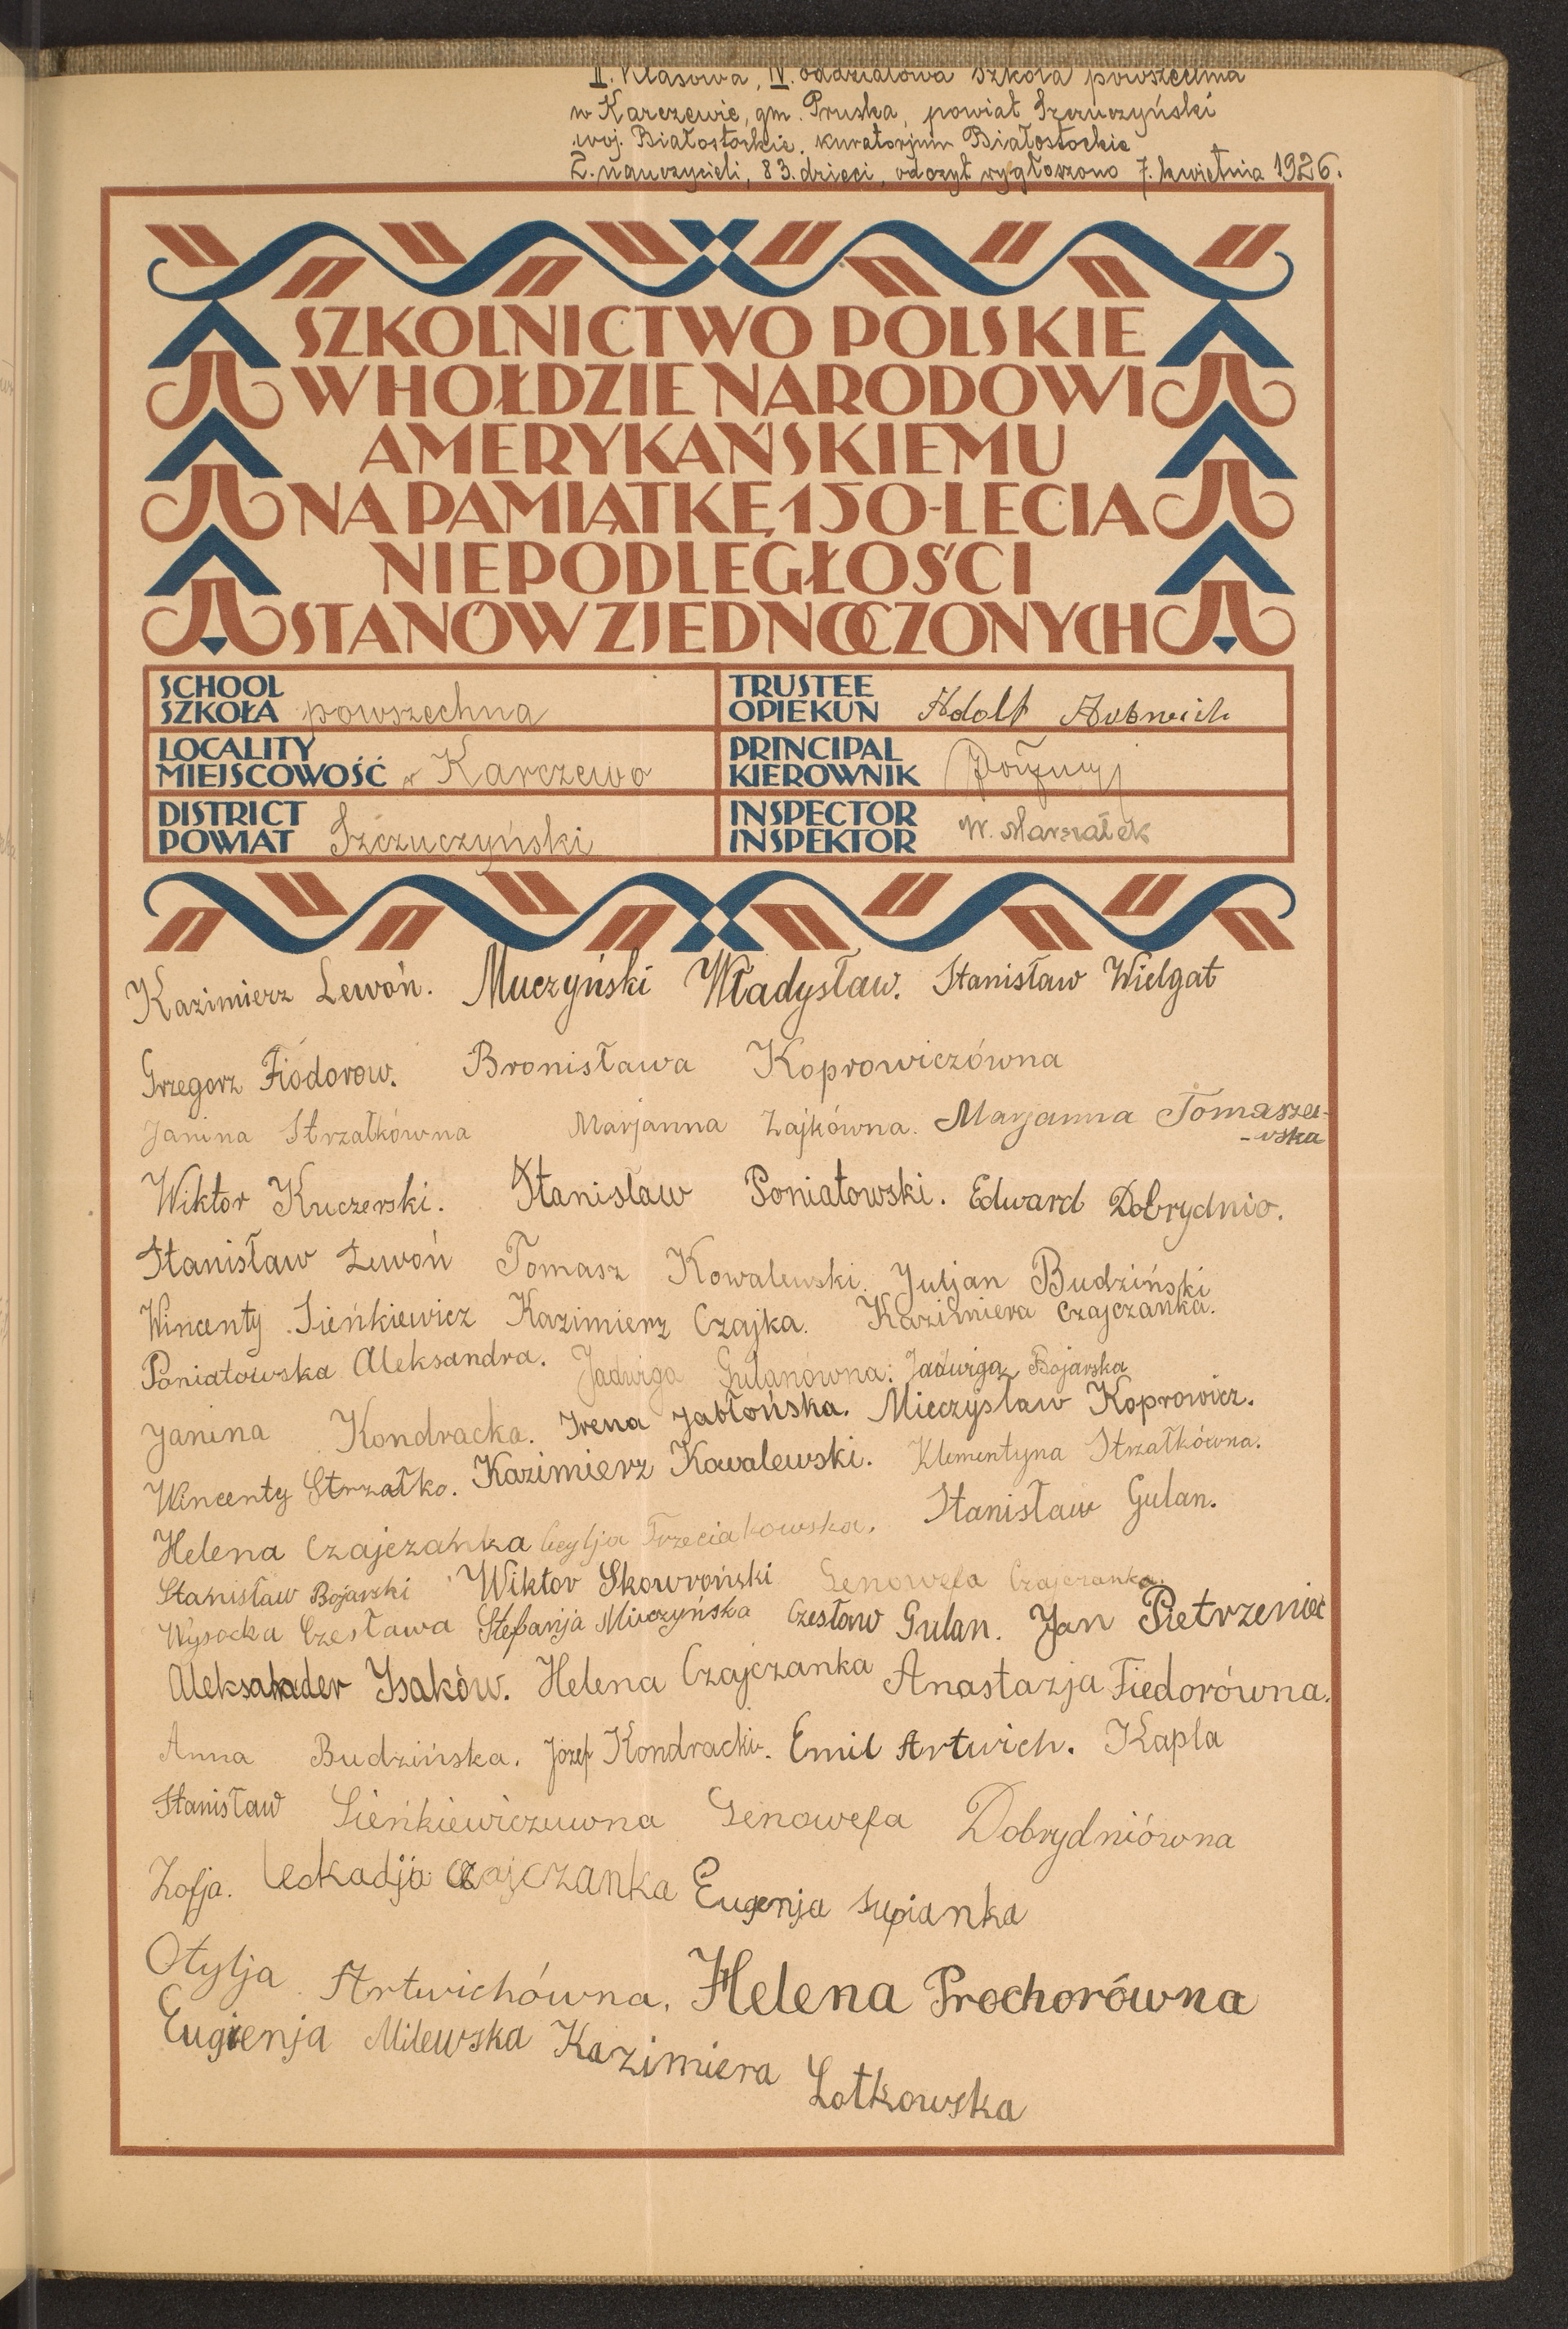 II. Klasowa, IV. oddziałowa Szkoła powszechna
w Karczewie, gm. Pruska, powiat Szczuczyński
woj. Białostockie, kuratorjum Białostockie
2. nauczycieli, 83. dzieci, odczyt wygłoszono 7. kwietnia 1926.
SZKOLNICTWO POLSKIE
W HOŁDZIE NARODOWI
AMERYKAŃSKIEMU
NA PAMIĄTKĘ 150-LECIA
NIEPODLEGŁOŚCI
STANÓW ZJEDNOCZONYCH
SCHOOL
SZKOŁA powszechna
TRUSTEE
OPIEKUN Adolf
LOCALITY
MIEJSCOWOŚĆ w Karczewo
PRINCIPAL
KIEROWNIK
DISTRICT
POWIAT Szczuczyński
INSPECTOR
INSPEKTOR W. Marszałek
Kazimierz Lewoń. Muczyński Władysław. Stanisław Wielgat
Grzegorz Fiodorow. Bronisława Koprowiczówna
Janina Strzałkówna Marjanna Zajkówna. Marjanna Tomaszew-
-wska
Wiktor Kuczerski. Stanisław Poniatowski. Edward Dobrydnio.
Stanisław Lewoń Tomasz Kowalewski. Juljan Budziński
Wincenty Sieńkiewicz Kazimierz Czajka. Kazimiera Czajczanka.
Poniatowska Aleksandra. Jadwiga Gulanówna: Jadwiga Bojarska
Janina Kondracka. Irena Jabłońska. Mieczysław Koprowicz.
Wincenty Strzałko. Kazimierz Kowalewski. Klementyna Strzałkówna.
Helena Czajczanka Cecylja Trzeciakowska. Stanisław Gulan.
Stanisław Bojarski Wiktor Skowroński Genowefa Czajczanka.
Wysocka Czesława Stefanja Muczyńska Czesław Gulan. Jan Pietrzeniec
Aleksander Isaków. Helena Czajczanka Anastazja Fiedorówna.
Anna Budzińska. Józef Kondracki. Emil Artwich. Kapla
Stanisław Sieńkiewiczuwna Genowefa Dobrydniówna
Zofja. Leokadja Czajczanka Eugenja Supianka
Otylja Artwichówna. Helena Prochorówna
Eugienja Milewska Kazimiera Lotkowska